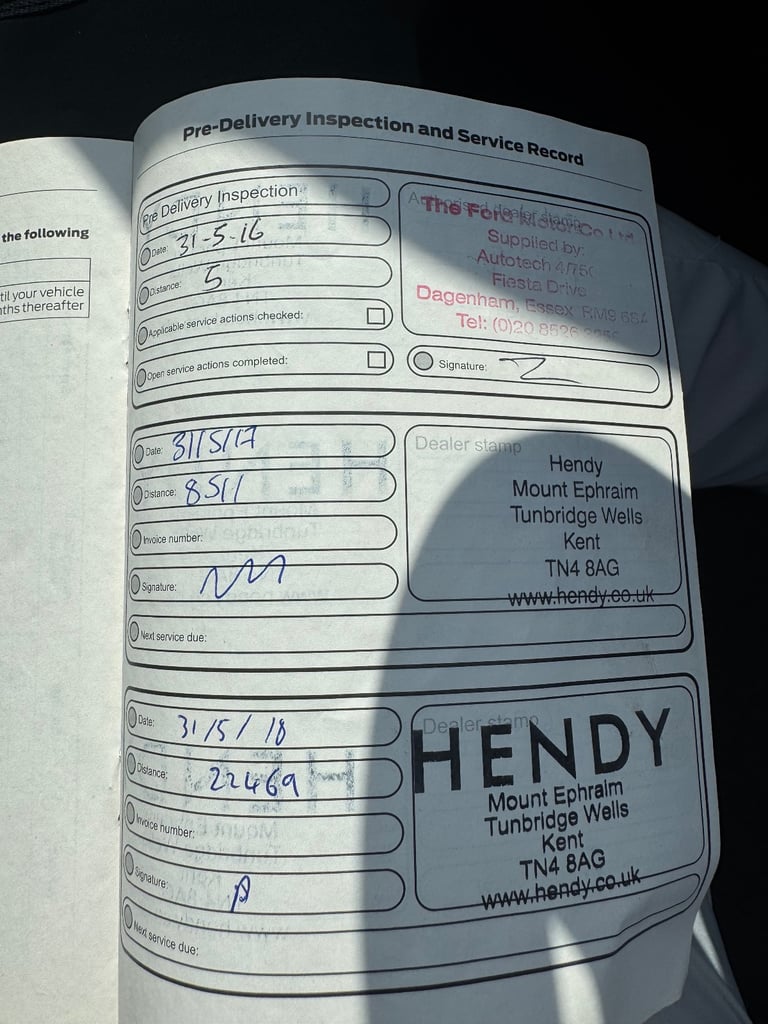 the following
til your vehicle
nths thereafter
Pre-Delivery Inspection and Service Record
Pre Delivery Inspection
Date: 31-5-16
Distance: 5
Applicable service actions checked:
Open service actions completed:
Authorised dealer stamp
The Ford Motor Co Ltd
Supplied by:
Autotech
Fiesta Drive
Dagenham, Essex RM9
Tel: (0)20 8526
Signature:
Date: 31/5/17
Distance: 8511
Invoice number:
Signature:
Next service due:
Dealer stamp
Hendy
Mount Ephraim
Tunbridge Wells
Kent
TN4 8AG
www.hendy.co.uk
Date: 31/5/18
Distance: 22469
Invoice number:
Signature:
Next service due:
Dealer stamp
HENDY
Mount Ephraim
Tunbridge Wells
Kent
TN4 8AG
www.hendy.co.uk